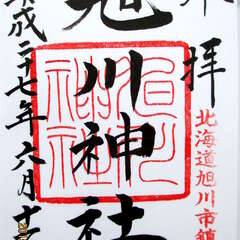 北海道旭川市鎮
拝
旭川神社
旭川神社
平成二十七年六月十